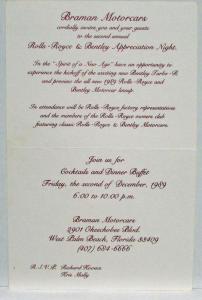 Braman Motorcars
cordially invites you and your guests
to the second annual
Rolls-Royce & Bentley Appreciation Night.
In the "Spirit of a New Age" have an opportunity to
experience the kickoff of the exciting new Bentley Turbo R
and preview the all new 1989 Rolls-Royce and
Bentley Motorcar lineup.
In attendance will be Rolls-Royce factory representatives
and the members of the Rolls-Royce owners club
featuring classic Rolls-Royce & Bentley Motorcars.
Join us for
Cocktails and Dinner Buffet
Friday, the second of December, 1989
6:00 to 10:00 p.m.
Braman Motorcars
2901 Okeechobee Blvd.
West Palm Beach, Florida 33409
(407) 684-6666
R.S.V.P. Richard
Kris